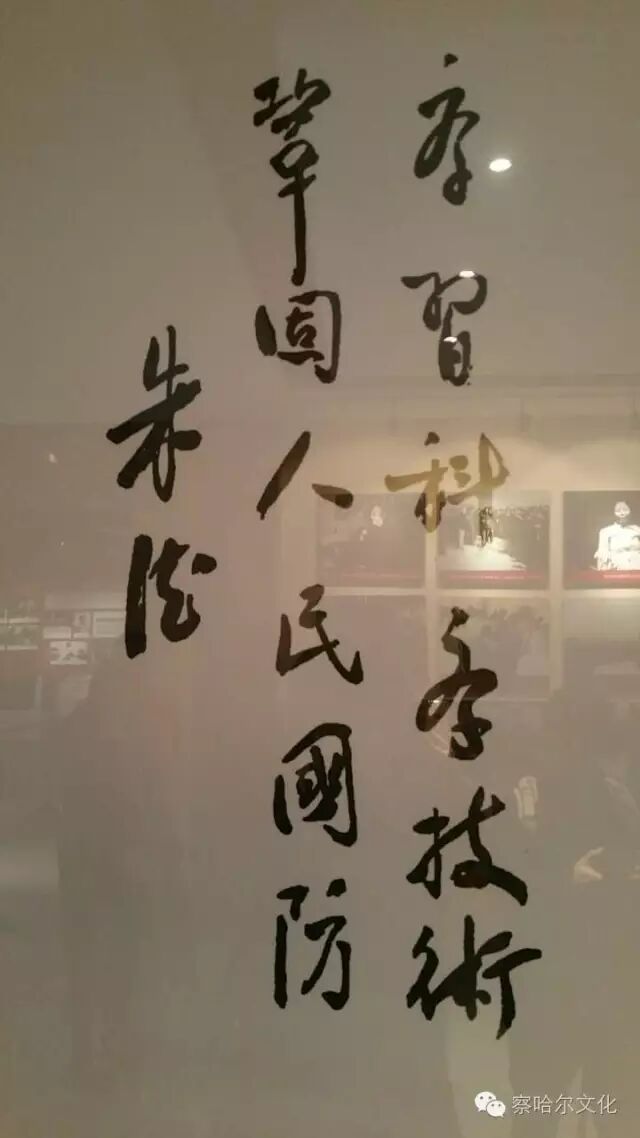 学習科学技術
鞏固人民國防
朱德
察哈尔文化